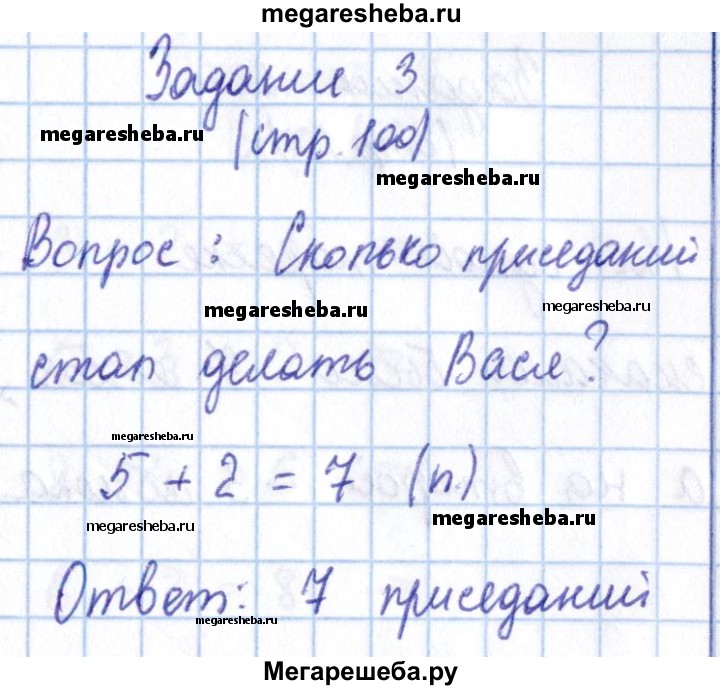 megaresheba.ru
Задание 3
megaresheba.ru
(стр. 100)
megaresheba.ru
Вопрос: Сколько приседаний
megaresheba.ru megaresheba.ru
стал делать Вася?
megaresheba.ru
5 + 2 = 7 (п)
megaresheba.ru megaresheba.ru
Ответ: 7 приседаний
megaresheba.ru
Мегарешеба.ру